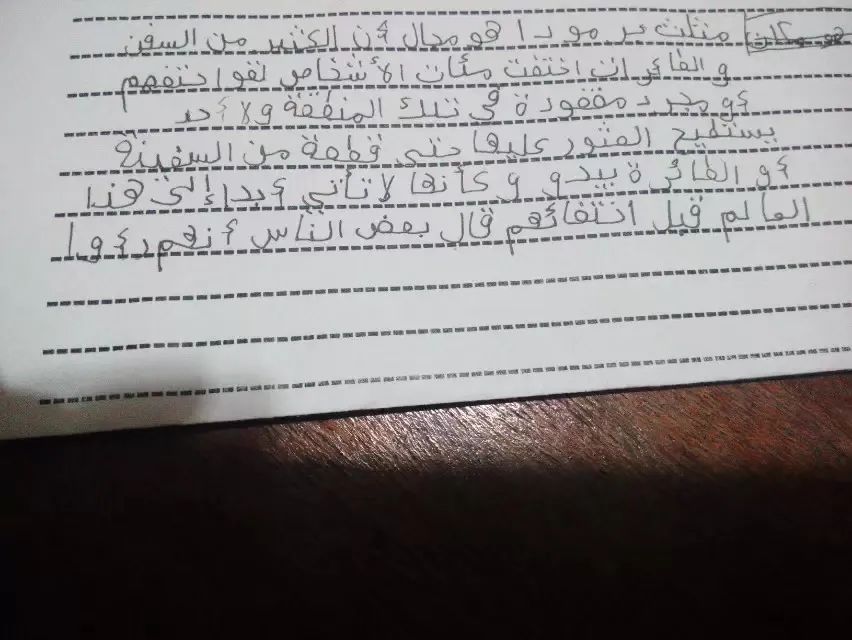 هو مكان مثلث برمودا هو مجال أن الكثير من السفن
و الطائرات اختفت مئات الأشخاص لقوا حتفهم
أو مجرد مفقودة في تلك المنطقة ولا أحد
يستطيع العثور عليها حتى قطعة من السفينة
أو الطائرة يبدو و كأنها لا تأتي أبدا إلى هذا
العالم قبل اختفائهم قال بعض الناس أنهم رؤوا